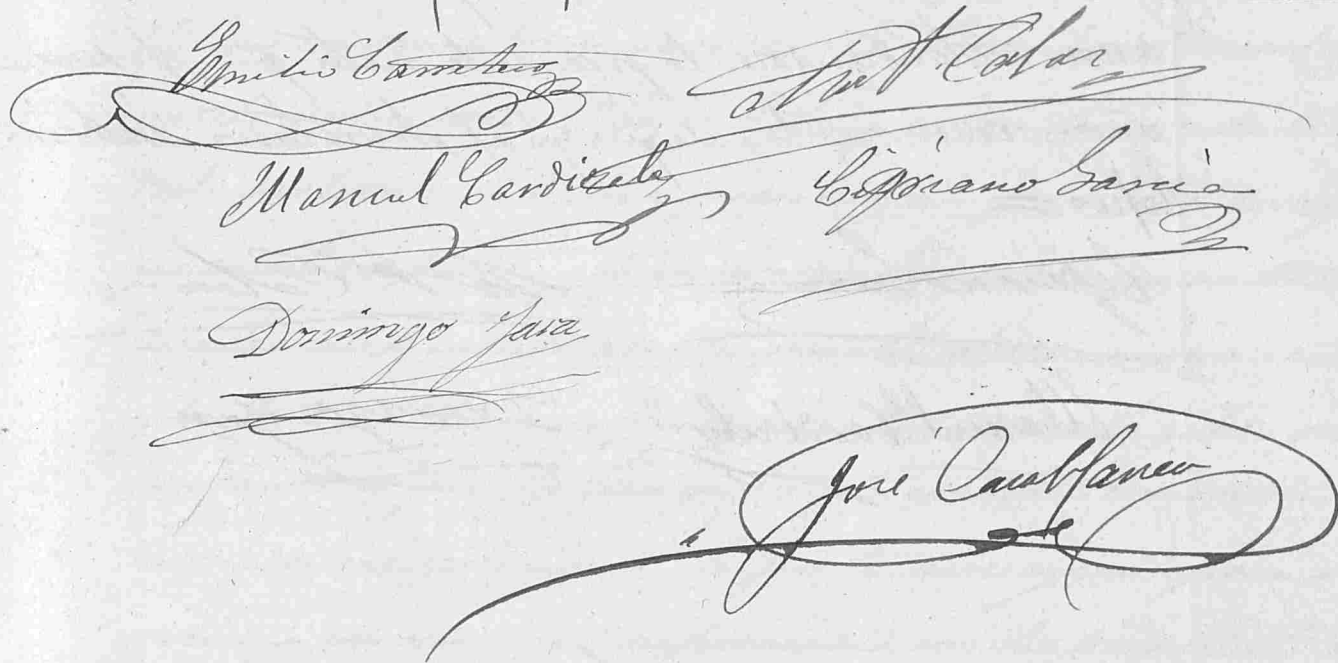 Emilio Carretero
Manuel Cardizales Cipriano Garcia
Domingo Jara
José Casablanca